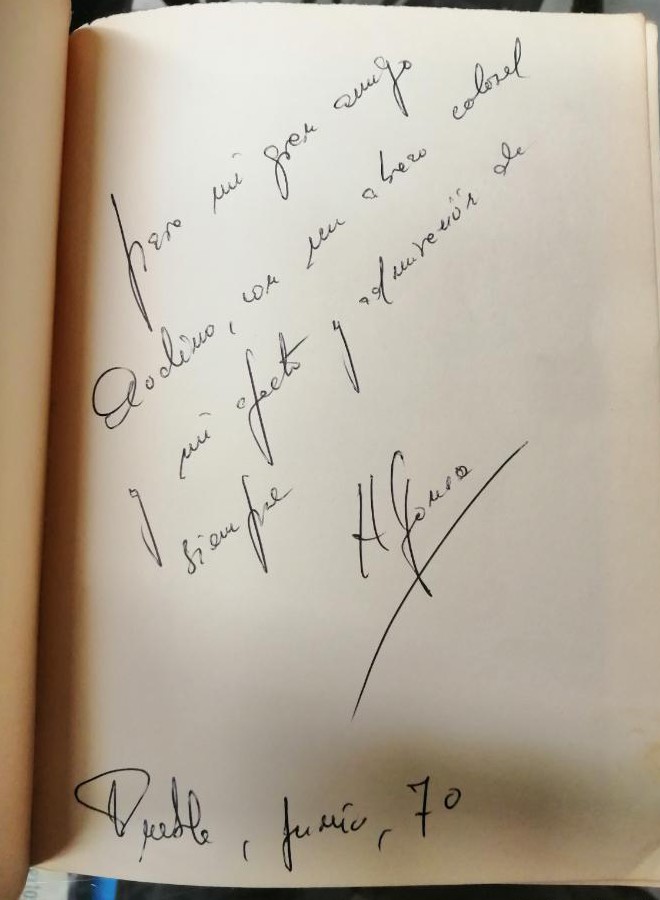 para mi gran amigo
con un abrazo cordial
y mi afecto y admiración de
siempre
Puebla, Junio, 70